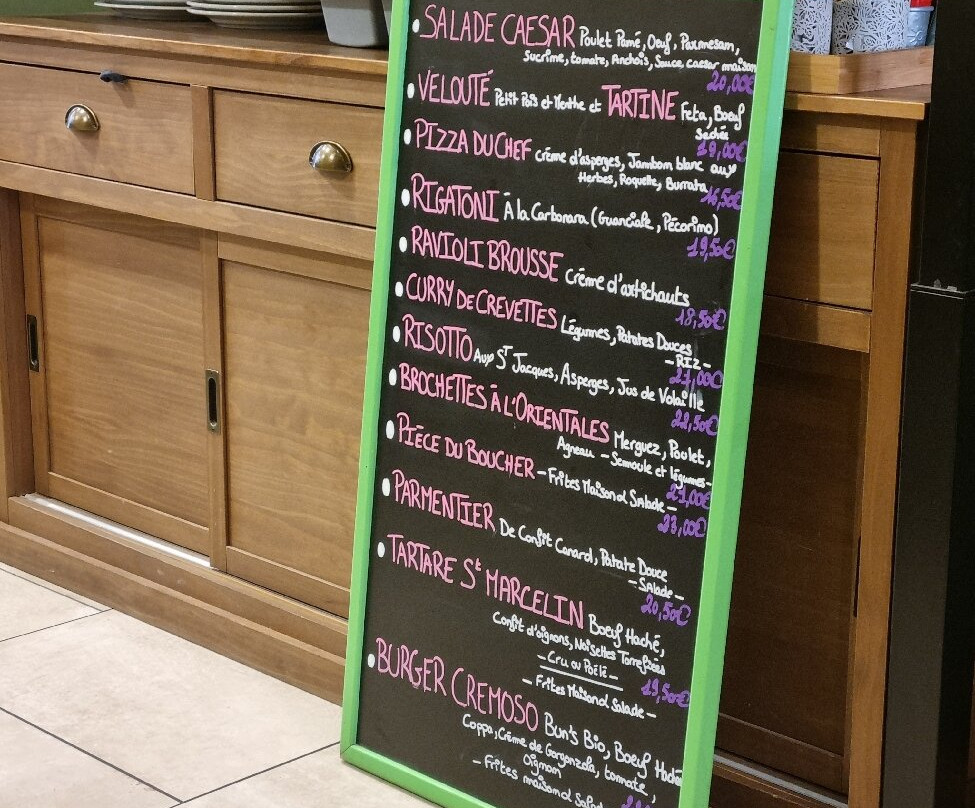 SALADE CAESAR Poulet Pané, Oeuf, Parmesan,
Sucrine, tomate, Anchois, Sauce caesar maison
20,00€
VELOUTÉ Petit Pois et Menthe et TARTINE Feta, Boeuf
Sechée
19,00€
PIZZA DU CHEF crème d'asperges, Jambom blanc aux
Herbes, Roquette, Burrata
16,50€
RIGATONI À la Carbonara (Guanciale, Pécorino)
19,50€
RAVIOLI BROUSSE Crème d'artichauts
18,50€
CURRY DE CREVETTES Légumes, Patates Douces
- RIZ -
21,00€
RISOTTO Aux St Jacques, Asperges, Jus de Volaille
22,50€
BROCHETTES À L'ORIENTALES Merguez, Poulet,
Agneau - Semoule et légumes -
PIÈCE DU BOUCHER - Frites Maison & Salade -
23,00€
PARMENTIER De Confit Canard, Patate Douce
- Salade -
20,50€
TARTARE St MARCELIN Boeuf Haché,
Confit d'oignons, Noisettes Torréfiées
- Cru ou Poêlé -
19,50€
- Frites Maison & Salade -
BURGER CREMOSO Bun's Bio, Boeuf Haché
Coppa, Crème de Gorgonzola, tomate,
Oignon
- Frites maison & Salad